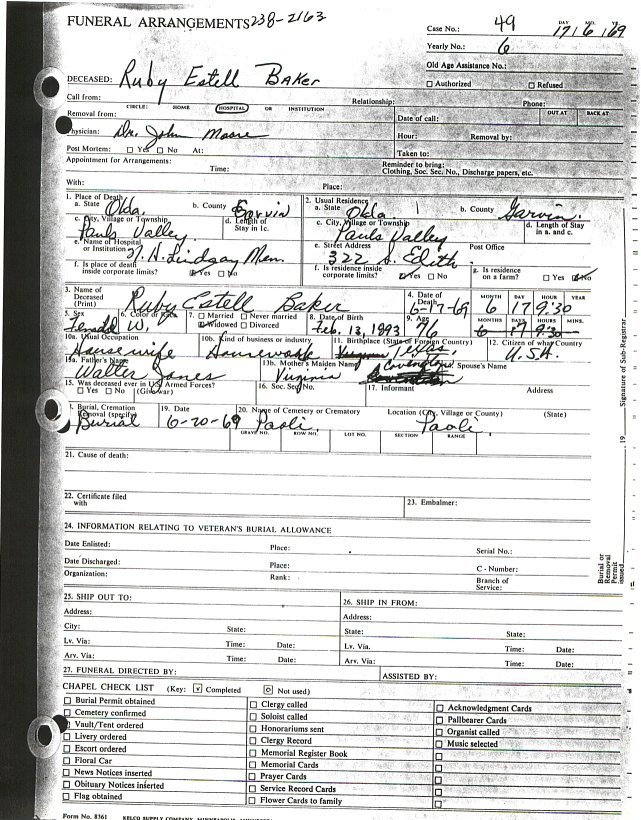 FUNERAL ARRANGEMENTS 238-2163
Case No.: 49 DAY MO. YR.
17 6 69
Yearly No.: 6
Old Age Assistance No.:
DECEASED: Ruby Estell Baker
☐ Authorized ☐ Refused
Call from: Relationship: Phone:
CIRCLE: HOME HOSPITAL OR INSTITUTION
Removal from: Date of call: OUT AT BACK AT
Physician: Dr. John Moore Hour: Removal by:
Post Mortem: ☐ Yes ☐ No At: Taken to:
Appointment for Arrangements: Time: Reminder to bring:
Clothing, Soc. Sec. No., Discharge papers, etc.
With: Place:
1. Place of Death 2. Usual Residence
a. State Okla. b. County Garvin a. State Okla b. County Garvin.
c. City, Village or Township Pauls Valley d. Length of Stay in 1c. c. City, Village or Township Pauls Valley d. Length of Stay in a. and c.
e. Name of Hospital or Institution Lindsay Mem. e. Street Address 322 S. Edith Post Office
f. Is place of death inside corporate limits? ☑ Yes ☐ No f. Is residence inside corporate limits? ☑ Yes ☐ No g. Is residence on a farm? ☐ Yes ☑ No
3. Name of Deceased (Print) Ruby Estell Baker 4. Date of Death 6-17-69 MONTH DAY HOUR YEAR
6 17 9:30
5. Sex Female 6. Color or Race W. 7. ☐ Married ☐ Never married ☑ Widowed ☐ Divorced 8. Date of Birth Feb. 13, 1893 9. Age 76 MONTHS DAYS HOURS MINS.
10a. Usual Occupation Housewife 10b. Kind of business or industry Housework 11. Birthplace (State or Foreign Country) Texas. 12. Citizen of what Country U.S.A.
13a. Father's Name Walter Jones 13b. Mother's Maiden Name Virginia Covington Spouse's Name
15. Was deceased ever in U.S. Armed Forces? 16. Soc. Sec. No. 17. Informant Address
☐ Yes ☐ No (Give war)
Burial, Cremation Removal (specify) Burial 19. Date 6-20-69 20. Name of Cemetery or Crematory Paoli Location (City, Village or County) Paoli (State)
GRAVE NO. ROW NO. LOT NO. SECTION RANGE
21. Cause of death:
22. Certificate filed with 23. Embalmer:
24. INFORMATION RELATING TO VETERAN'S BURIAL ALLOWANCE
Date Enlisted: Place: Serial No.:
Date Discharged: Place: C - Number:
Organization: Rank: Branch of Service:
25. SHIP OUT TO: 26. SHIP IN FROM:
Address: Address:
City: State: State: State:
Lv. Via: Time: Date: Lv. Via. Time: Date:
Arv. Via: Time: Date: Arv. Via. Time: Date:
27. FUNERAL DIRECTED BY: ASSISTED BY:
CHAPEL CHECK LIST (Key: v Completed o Not used)
☐ Burial Permit obtained ☐ Clergy called ☐ Acknowledgment Cards
☐ Cemetery confirmed ☐ Soloist called ☐ Pallbearer Cards
☐ Vault/Tent ordered ☐ Honorariums sent ☐ Organist called
☐ Livery ordered ☐ Clergy Record ☐ Music selected
☐ Escort ordered ☐ Memorial Register Book ☐
☐ Floral Car ☐ Memorial Cards ☐
☐ News Notices inserted ☐ Prayer Cards ☐
☐ Obituary Notices inserted ☐ Service Record Cards ☐
☐ Flag obtained ☐ Flower Cards to family ☐
Form No. 8361 KELCO SUPPLY COMPANY, MINNEAPOLIS,
Signature of Sub-Registrar
19
Burial or Removal Permit issued